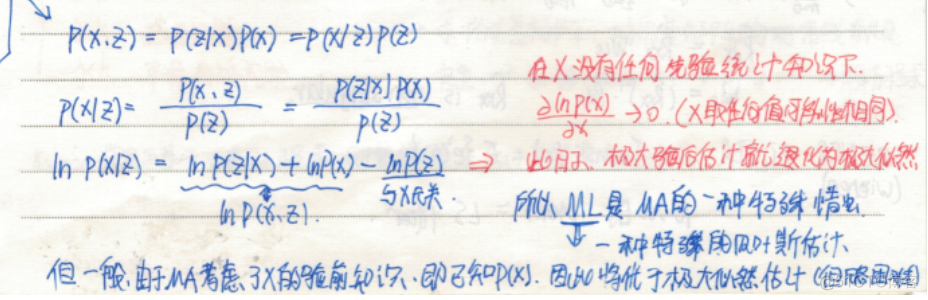 P(x,z) = P(z|x)P(x) = P(x|z)P(z)
在X没有任何先验统计知识下.
P(x|z) = P(x,z) / P(z) = P(z|x)P(x) / P(z)
∂lnP(x)/∂x → 0. (X取任何值可能性相同).
ln P(x|z) = ln P(z|x) + lnP(x) - lnP(z) ⇒ 此时, 极大验后估计就退化为极大似然
与X无关.
ln P(x,z).
所以 ML是MA的一种特殊情况
一种特殊的贝叶斯估计.
但一般,由于MA考虑了X的验前知识,即已知P(x). 因此将优于极大似然估计